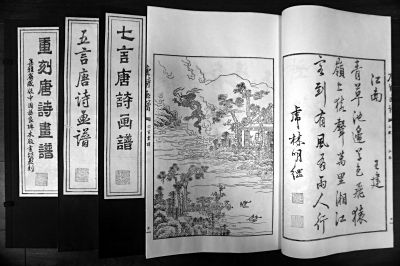 重刻唐詩畫譜
五言唐詩畫譜
七言唐詩画譜
江南
王建
青草池邊草色飛猿
嶺上猿聲萬里湘江
客到有風有雨人行